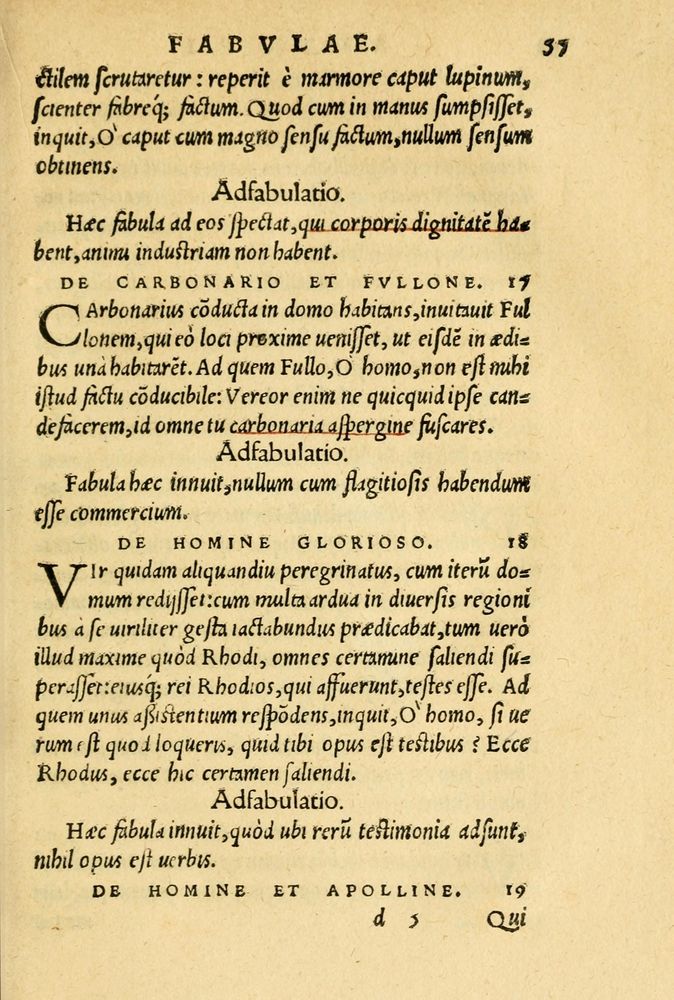 FABVLAE. 57
ctilem scrutaretur: reperit è marmore caput lupinum,
scienter fabreq́; factum. Quod cum in manus sumpsisset,
inquit, O` caput cum magno sensu factum, nullum sensum
obtinens.
Adfabulatio.
Hæc fabula ad eos spectat, qui corporis dignitatē ha=
bent, animi industriam non habent.
DE CARBONARIO ET FVLLONE. 17
CArbonarius cōducta in domo habitans, inuitauit Ful
lonem, qui eò loci proxime uenisset, ut eisdē in ædi=
bus unà habitarēt. Ad quem Fullo, O` homo, non est mihi
istud factu cōducibile: Vereor enim ne quicquid ipse can=
defacerem, id omne tu carbonaria aspergine fuscares.
Adfabulatio.
Fabula hæc innuit, nullum cum flagitiosis habendum
esse commercium.
DE HOMINE GLORIOSO. 18
VIr quidam aliquandiu peregrinatus, cum iterū do=
mum redijsset: cum multa ardua in diuersis regioni
bus à se uiriliter gesta iactabundus prædicabat, tum uerò
illud maxime quòd Rhodi, omnes certamine saliendi su=
perasset: eiusq́; rei Rhodios, qui affuerunt, testes esse. Ad
quem unus assistentium respōdens, inquit, O` homo, si ue
rum est quod loqueris, quid tibi opus est testibus? Ecce
Rhodus, ecce hic certamen saliendi.
Adfabulatio.
Hæc fabula innuit, quòd ubi rerū testimonia adsunt,
nihil opus est uerbis.
DE HOMINE ET APOLLINE. 19
d 5 Qui